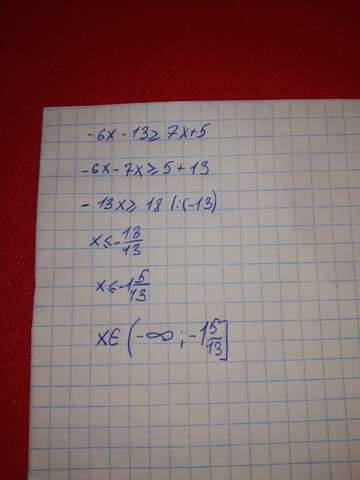 -6x - 13 ≥ 7x + 5
-6x - 7x ≥ 5 + 13
- 13x ≥ 18 |:(-13)
x ≤ - 18/13
x ≤ -1 5/13
x ∈ (-∞ ; -1 5/13]